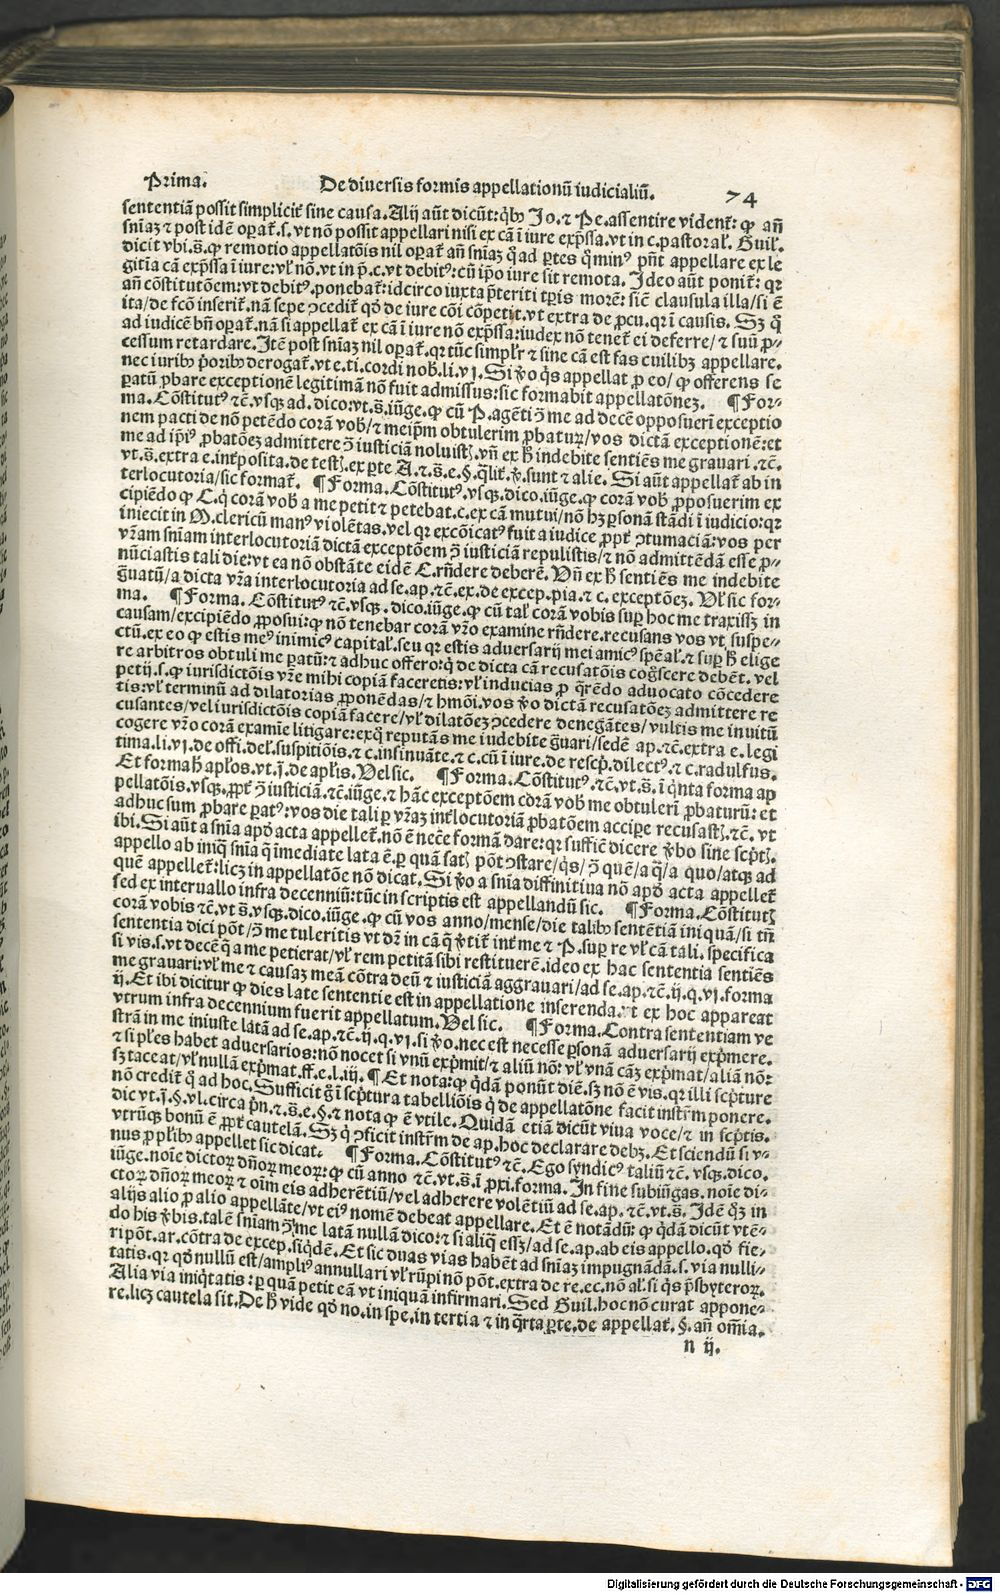 Prima. De diuersis formis appellationũ iudicialiũ. 74
sententiã possit simplicit̃ sine causa. Alij aũt dicũt: qb̃o Jo. ⁊ Pe. assentire vident̃: ꝙ añ
sñiaꝫ ⁊ post idẽ oꝑat̃. s. vt nõ possit appellari nisi ex cã ĩ iure exp̃ssa. vt in c. pastoral̃. Guil.
dicit vbi. s̃. ꝙ remotio appellatõis nil oꝑat̃ añ sñiaꝫ q̃ ad ꝑtes q̃minꝰ pñt appellare ex le
gitĩa cã exp̃ssa ĩ iure: vl̃ nõ. vt in p̃. c. vt debitꝰ: cũ ip̃o iure sit remota. Jdeo aũt ponit̃: qꝛ
añ cõstitutõem: vt debitꝰ. ponebat̃: idcirco iuxta p̃teriti tꝑis morẽ: siẽ clausula illa / si ẽ
ita / de fcõ inserit̃. nã sepe ɔcedit̃ qd̃ de iure cõi cõpetijt. vt extra de ꝓcu. qꝛ ĩ causis. Sꝫ q̃
ad iudicẽ bñ oꝑat̃. nã si appellat̃ ex cã ĩ iure nõ exp̃ssa: iudex nõ tenet̃ ei deferre / ⁊ suũ ꝓ-
cessum retardare. Jtẽ post sñiaꝫ nil oꝑat̃. qꝛ tũc simpl̃r ⁊ sine cã est fas cuilibꝫ appellare.
nec iuribꝰ p̃oribꝰ derogat̃. vt e. ti. cordi nob̃. li. vj. Si ṽo q̃s appellat ꝓ eo / ꝙ offerens se
ꝑatũ ꝓbare exceptionẽ legitimã nõ fuit admissus: sic formabit appellatõneꝫ. ¶ For-
ma. Cõstitutꝰ ⁊c̃. vsqꝫ ad. dico. vt. s̃. iũge. ꝙ cũ P. agẽti ɔ̃ me ad decẽ opposueri exceptio
nem pacti de nõ petẽdo corã vob̃ / ⁊ meip̃m obtulerim ꝓbaturꝫ / vos dictã exceptionẽ: et
me ad ip̃iꝰ ꝓbatõeꝫ admittere ɔ̃ iusticiã noluistꝭ. vñ ex h̃ indebite sentiẽs me grauari. ⁊c̃.
vt. s̃. extra e. int̃posita. de testꝭ. ex ꝑte A. ⁊. s̃. e. §. q̃lit̃. ṽ. sunt ⁊ alie. Si aũt appellat̃ ab in
terlocutoria / sic format̃. ¶ Forma. Cõstitutꝰ. vsqꝫ. dico. iũge. ꝙ corã vob̃ ꝓposuerim ex
cipiẽdo ꝙ C. q̃ corã vob̃ a me petit ⁊ petebat. c. ex cã mutui / nõ hꝫ ꝑsonã stãdi ĩ iudicio: qꝛ
iniecit in M. clericũ manꝰ violẽtas. vel qꝛ excõicatꝰ fuit a iudice ꝓpt̃ ɔtumaciã: vos per
vr̃am sñiam interlocutoriã dictã exceptõem ɔ̃ iusticiã repulistis / ⁊ nõ admittẽdã esse ꝓ-
nũciastis tali die: vt ea nõ obstãte eidẽ C. rñdere deberẽ. Vñ ex h̃ sentiẽs me indebite
g̃uatũ / a dicta vr̃a interlocutoria ad se. ap. ⁊c̃. ex. de excep. pia. ⁊ c. exceptõeꝫ. Vl̃ sic for-
ma. ¶ Forma. Cõstitutꝰ ⁊c̃. vsqꝫ. dico. iũge. ꝙ cũ tal̃ corã vobis suꝑ hoc me traxissꝫ in
causam / excipiẽdo ꝓposui: ꝙ nõ tenebar corã vr̃o examine rñdere. recusans vos vt suspe-
ctũ. ex eo ꝙ estis meꝰ inimicꝰ capital̃. seu qꝛ estis aduersarij mei amicꝰ spẽal̃. ⁊ suꝑ h̃ elige
re arbitros obtuli me ꝑatũ: ⁊ adhuc offero: q̃ de dicta cã recusatõis cog̃scere debẽt. vel
petij. s. ꝙ iurisdictõis vr̃e mihi copiã faceretis: vl̃ inducias ꝓ q̃rẽdo aduocato cõcedere
tis: vl̃ terminũ ad dilatorias ꝓponẽdas / ⁊ hmõi. vos ṽo dictã recusatõeꝫ admittere re
cusantes / vel iurisdictõis copiã facere / vl̃ dilatõeꝫ ɔcedere denegãtes / vultis me inuitũ
cogere vr̃o corã examĩe litigare: exq̃ reputãs me iudebite g̃uari / sedẽ ap. ⁊c̃. extra e. legi
tima. li. vj. de offi. del̃. suspitiõis. ⁊ c. insinuãte. ⁊ c. cũ ĩ iure. de rescp̃. dilectꝰ. ⁊ c. radulfus.
Et formah̃ apl̃os. vt. j̃. de apl̃is. Vel sic. ¶ Forma. Cõstitutꝰ. ⁊c̃. vt. s̃. ĩ q̃nta forma ap
pellatõis. vsqꝫ. ꝓpt̃ ɔ̃ iusticiã. ⁊c̃. iũge. ⁊ hãc exceptõem corã vob̃ me obtulerĩ ꝓbaturũ: et
adhuc sum ꝓbare ꝑatꝰ: vos die tali ꝑ vr̃aꝫ int̃locutoriã ꝓbatõem acciꝑe recusastꝭ. ⁊c̃. vt
ibi. Si aũt a sñia apd̃ acta appellet̃. nõ ẽ necẽ formã dare: qꝛ sufficẽ dicere ṽbo sine scp̃tꝭ.
appello ab iniq̃ sñia q̃ imediate lata ẽ. ꝑ quã satꝭ põt ɔstare / q̃s / ɔ̃ quẽ / a q̃ / a quo / atqꝫ ad
quẽ appellet̃: licꝫ in appellatõe nõ dicat. Si ṽo a sñia diffinitiua nõ apd̃ acta appellet̃
sed ex interuallo infra decenniũ: tũc in scriptis est appellandũ sic. ¶ Forma. Cõstitutꝭ
corã vobis ⁊c̃. vt s̃. vsqꝫ. dico. iũge. ꝙ cũ vos anno / mense / die talibꝰ sentẽtiã iniquã / si tñ
sententia dici põt / ɔ̃ me tuleritis vt dr̃ in cã q̃ ṽtit̃ int̃ me ⁊ P. suꝑ re vl̃ cã tali. specifica
si vis. s. vt decẽ q̃ a me petierat / vl̃ rem petitã sibi restituerẽ. ideo ex hac sententia sentiẽs
me grauari: vl̃ me ⁊ causaꝫ meã cõtra deũ ⁊ iusticiã aggrauari / ad se. ap. ⁊c̃. ij. q. vj. forma
ij. Et ibi dicitur ꝙ dies late sententie est in appellatione inserenda. vt ex hoc appareat
vtrum infra decennium fuerit appellatum. Vel sic. ¶ Forma. Contra sententiam ve
strã in me iniuste latã ad se. ap. ⁊c̃. ij. q. vj. si ṽo. nec est necesse ꝑsonã aduersarij exp̃mere.
⁊ si pl̃es habet aduersarios: nõ nocet si vnũ exp̃mit / ⁊ aliũ nõ: vl̃ vnã cãꝫ exp̃mat / aliã nõ:
sꝫ taceat / vl̃ nullã exp̃mat. ff. e. l. iij. ¶ Et nota: ꝙ q̃dã ponũt diẽ. sꝫ nõ ẽ vis. qꝛ illi scp̃ture
nõ credit̃ q̃ ad hoc. Sufficit g̃ ĩ scp̃tura tabelliõis q̃ de appellatõne facit instr̃m ponere.
dic vt. j̃. §. vl. circa p̃n. ⁊. s̃. e. §. ⁊ nota ꝙ ẽ vtile. Quidã etiã dicũt viua voce / ⁊ in scp̃tis.
vtrũqꝫ bonũ ẽ ꝓpt̃ cautelã. Sꝫ q̃ ɔficit instr̃m de ap. hoc declarare debꝫ. Et sciendũ si v-
nus ꝓ pl̃ibꝰ appellet sic dicat. ¶ Forma. Cõstitutꝰ ⁊c̃. Ego syndicꝰ taliũ ⁊c̃. vsqꝫ. dico.
iũge. noĩe dictoꝝ dñoꝝ meoꝝ: ꝙ cũ anno ⁊c̃. vt. s̃. ĩ ꝓxi. forma. Jn fine subiũgas. noĩe di-
ctoꝝ dñoꝝ meoꝝ ⁊ oĩm eis adherẽtiũ / vel adherere volẽtiũ ad se. ap. ⁊c̃. vt. s̃. Jdẽ q̃ꝫ in
alijs alio ꝓ alio appellãte / vt eiꝰ nomẽ debeat appellare. Et ẽ notãdũ: ꝙ q̃dã dicũt vtẽ-
do his ṽbis. talẽ sñiam ɔ̃ me latã nullã dico: ⁊ si aliq̃ essꝫ / ad se. ap. ab eis appello. qd̃ fie-
ri põt. ar. cõtra de excep. siq̃dẽ. Et sic duas vias habẽt ad sñiaꝫ impugnãdã. s. via nulli-
tatis. qꝛ qd̃ nullũ est / ampliꝰ annullari vl̃ rũpi nõ põt. extra de re. ec. nõ al̃. si q̃s p̃sbyteroꝝ.
Alia via iniq̃tatis: ꝑ quã petit eã vt iniquã infirmari. Sed Guil. hoc nõ curat appone-
re. licꝫ cautela sit. De h̃ vide qd̃ no. in spe. in tertia ⁊ in q̃rta ꝑte. de appellat̃. §. añ om̃ia.
n ij.
Digitalisierung gefördert durch die Deutsche Forschungsgemeinschaft - DFG